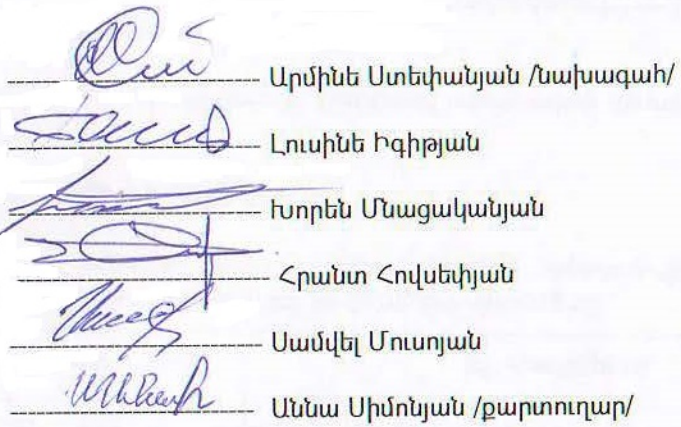 Արմինե Ստեփանյան /նախագահ/
Լուսինե Իգիթյան
Խորեն Մնացականյան
Հրանտ Հովսեփյան
Սամվել Մուսոյան
Աննա Սիմոնյան /քարտուղար/